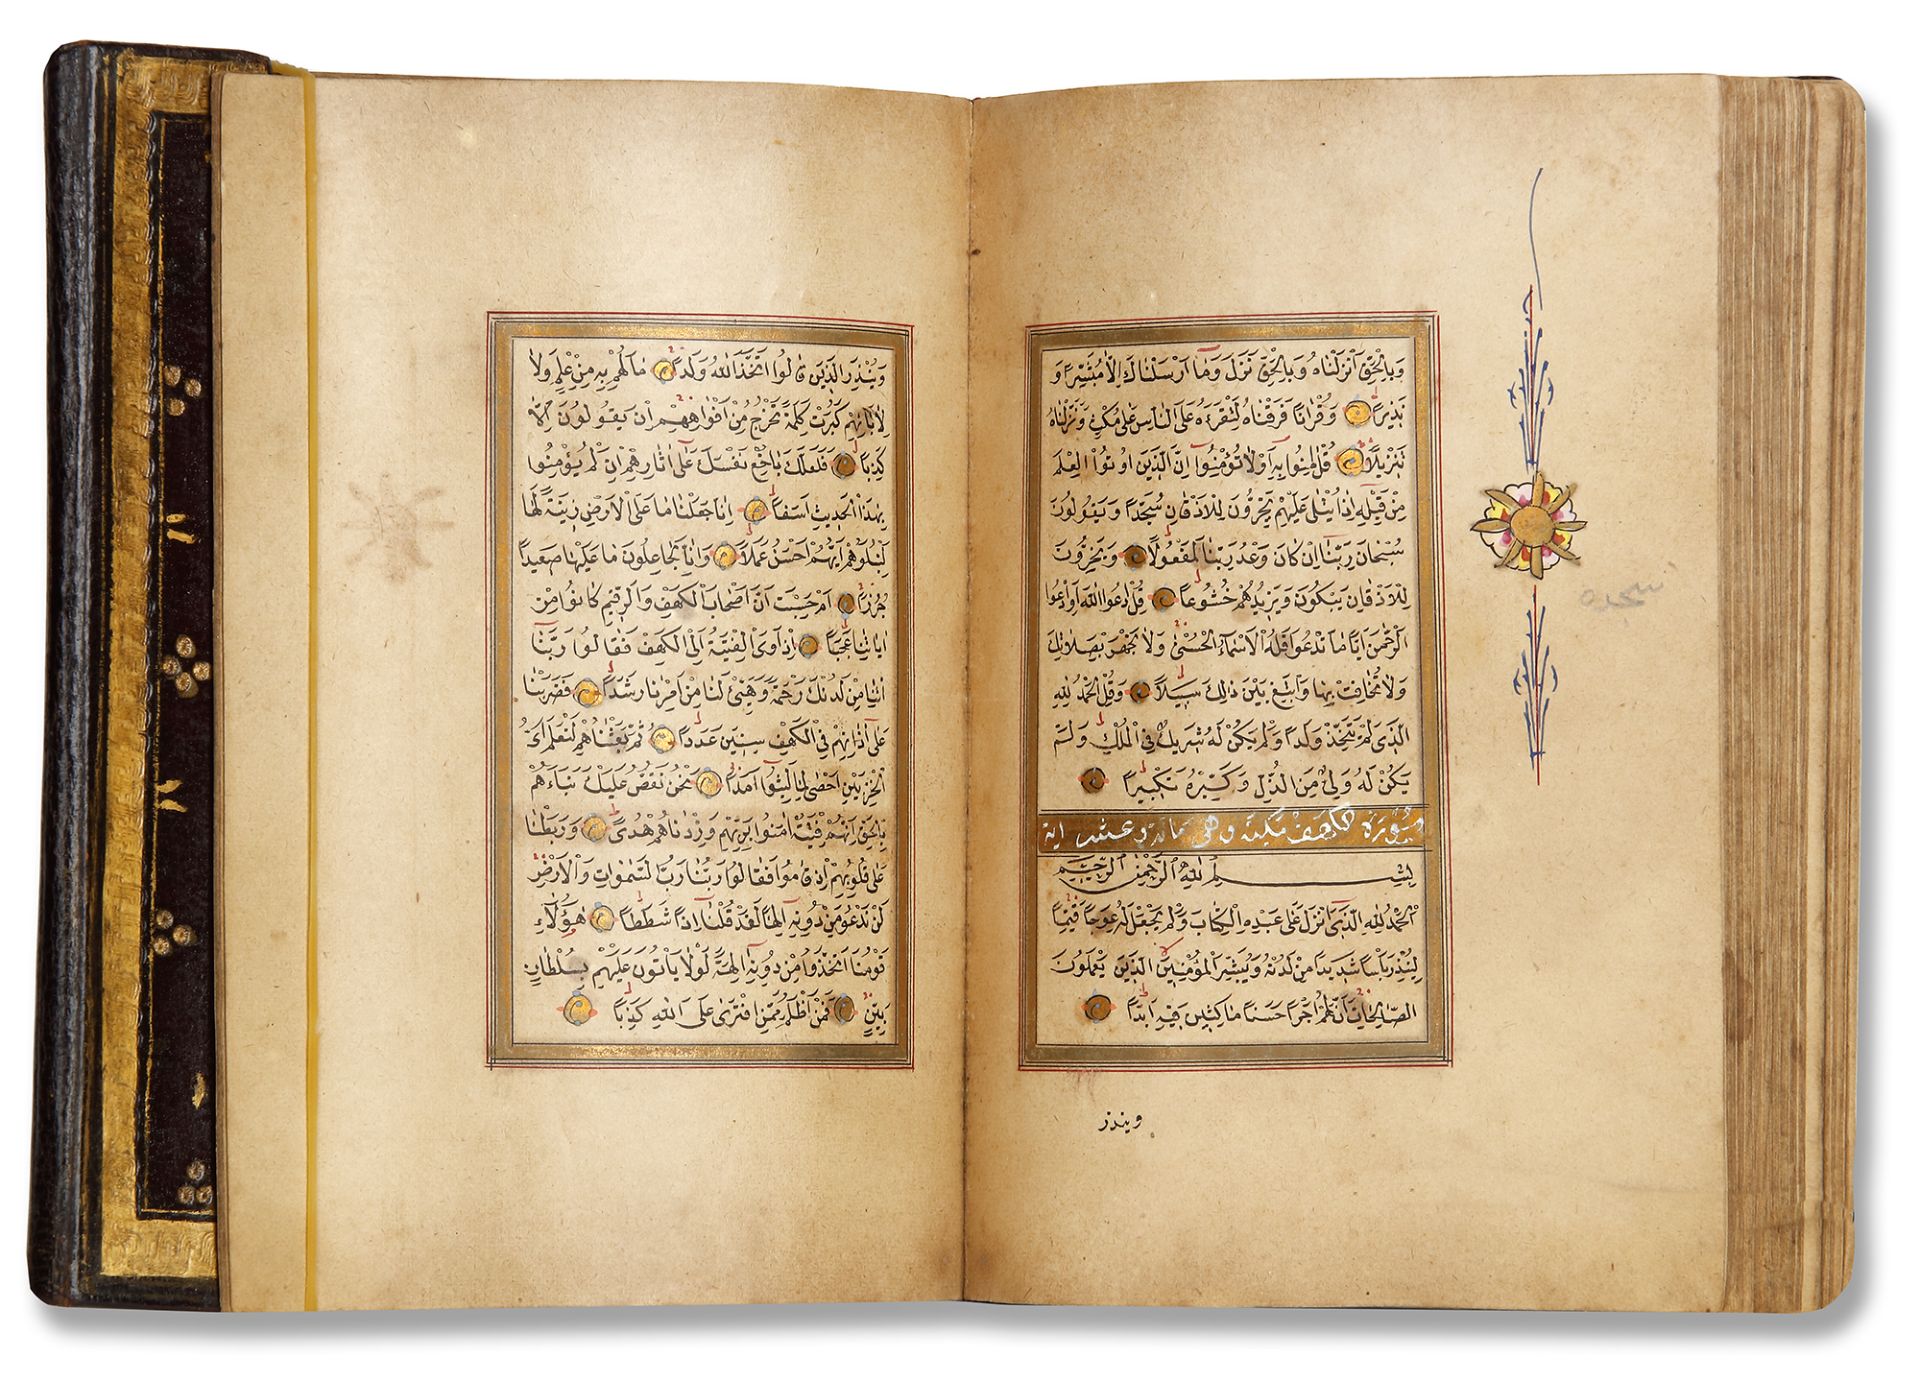 وَبِالْحَقِّ اَنْزَلْنَاهُ وَبِالْحَقِّ نَزَلَ وَمَٓا اَرْسَلْنَاكَ اِلَّا مُبَشِّرًا وَ
نَذِيرًا وَقُرْاٰنًا فَرَقْنَاهُ لِتَقْرَءَهُ عَلَى النَّاسِ عَلٰى مُكْثٍ وَنَزَّلْنَاهُ
تَنْزِيلًا قُلْ اٰمِنُوا بِهِٓ اَوْ لَا تُؤْمِنُوا اِنَّ الَّذِينَ اُوتُوا الْعِلْمَ
مِنْ قَبْلِهِٓ اِذَا يُتْلٰى عَلَيْهِمْ يَخِرُّونَ لِلْاَذْقَانِ سُجَّدًا وَيَقُولُونَ
سُبْحَانَ رَبِّنَٓا اِنْ كَانَ وَعْدُ رَبِّنَا لَمَفْعُولًا وَيَخِرُّونَ
لِلْاَذْقَانِ يَبْكُونَ وَيَزِيدُهُمْ خُشُوعًا قُلِ ادْعُوا اللّٰهَ اَوِ ادْعُوا
الرَّحْمٰنَ اَيًّا مَا تَدْعُوا فَلَهُ الْاَسْمَٓاءُ الْحُسْنٰى وَلَا تَجْهَرْ بِصَلَاتِكَ
وَلَا تُخَافِتْ بِهَا وَابْتَغِ بَيْنَ ذٰلِكَ سَبِيلًا وَقُلِ الْحَمْدُ لِلّٰهِ
الَّذِي لَمْ يَتَّخِذْ وَلَدًا وَلَمْ يَكُنْ لَهُ شَرِيكٌ فِي الْمُلْكِ وَلَمْ
يَكُنْ لَهُ وَلِيٌّ مِنَ الذُّلِّ وَكَبِّرْهُ تَكْبِيرًا
سورة الكهف مكية وهى مائة وعشر اية
بِسْمِ اللّٰهِ الرَّحْمٰنِ الرَّحِيمِ
اَلْحَمْدُ لِلّٰهِ الَّذِٓي اَنْزَلَ عَلٰى عَبْدِهِ الْكِتَابَ وَلَمْ يَجْعَلْ لَهُ عِوَجًا قَيِّمًا
لِيُنْذِرَ بَأْسًا شَدِيدًا مِنْ لَدُنْهُ وَيُبَشِّرَ الْمُؤْمِنِينَ الَّذِينَ يَعْمَلُونَ
الصَّالِحَاتِ اَنَّ لَهُمْ اَجْرًا حَسَنًا مَاكِثِينَ فِيهِ اَبَدًا
وينذر
سجده
وَيُنْذِرَ الَّذِينَ قَالُوا اتَّخَذَ اللّٰهُ وَلَدًا مَا لَهُمْ بِهِ مِنْ عِلْمٍ وَلَا
لِاٰبَٓائِهِمْ كَبُرَتْ كَلِمَةً تَخْرُجُ مِنْ اَفْوَاهِهِمْ اِنْ يَقُولُونَ اِلَّا
كَذِبًا فَلَعَلَّكَ بَاخِعٌ نَفْسَكَ عَلٰٓى اٰثَارِهِمْ اِنْ لَمْ يُؤْمِنُوا
بِهٰذَا الْحَدِيثِ اَسَفًا اِنَّا جَعَلْنَا مَا عَلَى الْاَرْضِ زِينَةً لَهَا
لِنَبْلُوَهُمْ اَيُّهُمْ اَحْسَنُ عَمَلًا وَاِنَّا لَجَاعِلُونَ مَا عَلَيْهَا صَعِيدًا
جُرُزًا اَمْ حَسِبْتَ اَنَّ اَصْحَابَ الْكَهْفِ وَالرَّقِيمِ كَانُوا مِنْ
اٰيَاتِنَا عَجَبًا اِذْ اَوَى الْفِتْيَةُ اِلَى الْكَهْفِ فَقَالُوا رَبَّنَٓا
اٰتِنَا مِنْ لَدُنْكَ رَحْمَةً وَهَيِّئْ لَنَا مِنْ اَمْرِنَا رَشَدًا فَضَرَبْنَا
عَلٰٓى اٰذَانِهِمْ فِي الْكَهْفِ سِنِينَ عَدَدًا ثُمَّ بَعَثْنَاهُمْ لِنَعْلَمَ اَيُّ
الْحِزْبَيْنِ اَحْصٰى لِمَا لَبِثُٓوا اَمَدًا نَحْنُ نَقُصُّ عَلَيْكَ نَبَاَهُمْ
بِالْحَقِّ اِنَّهُمْ فِتْيَةٌ اٰمَنُوا بِرَبِّهِمْ وَزِدْنَاهُمْ هُدًى وَرَبَطْنَا
عَلٰى قُلُوبِهِمْ اِذْ قَامُوا فَقَالُوا رَبُّنَا رَبُّ السَّمٰوَاتِ وَالْاَرْضِ
لَنْ نَدْعُوَ مِنْ دُونِهِٓ اِلٰهًا لَقَدْ قُلْنَٓا اِذًا شَطَطًا هٰٓؤُلَٓاءِ
قَوْمُنَا اتَّخَذُوا مِنْ دُونِهِٓ اٰلِهَةً لَوْلَا يَأْتُونَ عَلَيْهِمْ بِسُلْطَانٍ
بَيِّنٍ فَمَنْ اَظْلَمُ مِمَّنِ افْتَرٰى عَلَى اللّٰهِ كَذِبًا